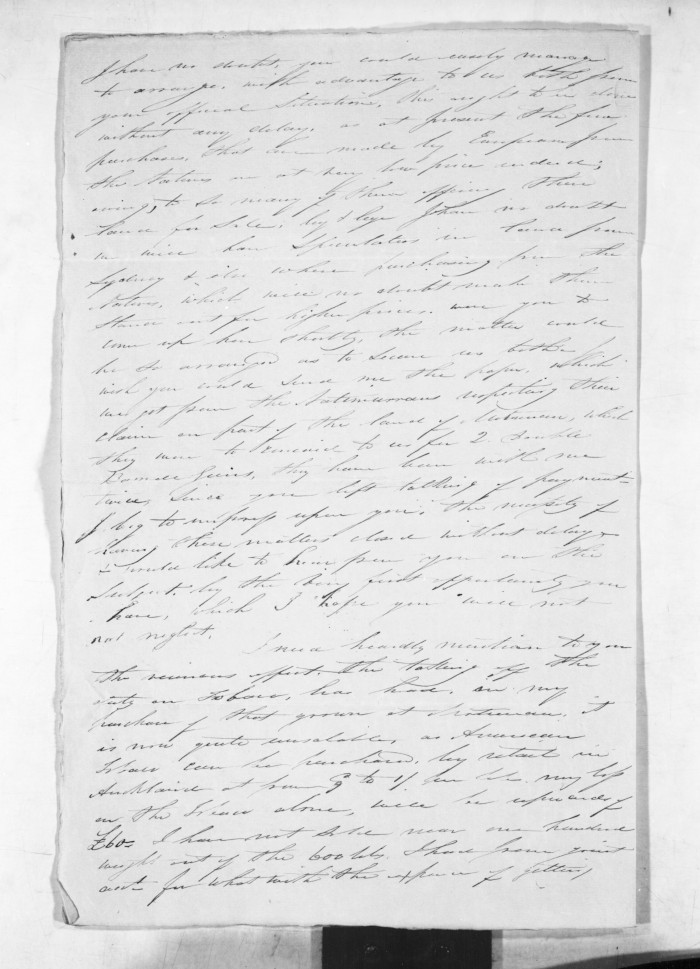 I have no doubt, you could easely manage
to arrange, with advantage to us both from
your official Situation, this ought to be done
without any delay, as at present the few
purchases, that are made by Europeans from
the Natives are at very low price indeed;
owing, to so many of them offering their
Lands for Sale, by & bye I have no doubt
we will have Speculators in Land from
Sydney & else where purchasing from the
Natives, which will no doubt make them
Stand out for higher prices. were you to
come up here shortly, the matter could
be so arranged as to secure us both. I
wish you would send me the paper, which
we got from the respecting their
claim on part of the land of which
they were to concede to us for 2 Double
Barrell Guns, they have been with me
twice since you left talking of payment
I beg to impress upon you, the necessity of
having these matters closed without delay &
would like to hear from you on this
Subject by the very first opportunity you
have, which I hope you will not
not neglect.
I need heardly mention to you
the ruinous effect the taking off the
duty on Tobacco, has had, on my
purchase of that grown at it
is now quite unsaleable, as American
Tobacco can be purchased, by retail in
Auckland at from 9 to 1/ per lb. my loss
on the Tobacco alone, will be upwards of
£60. I have not Sold near one hundred
weight out of the 600 lbs, I have from your
acct for what with the expence of getting